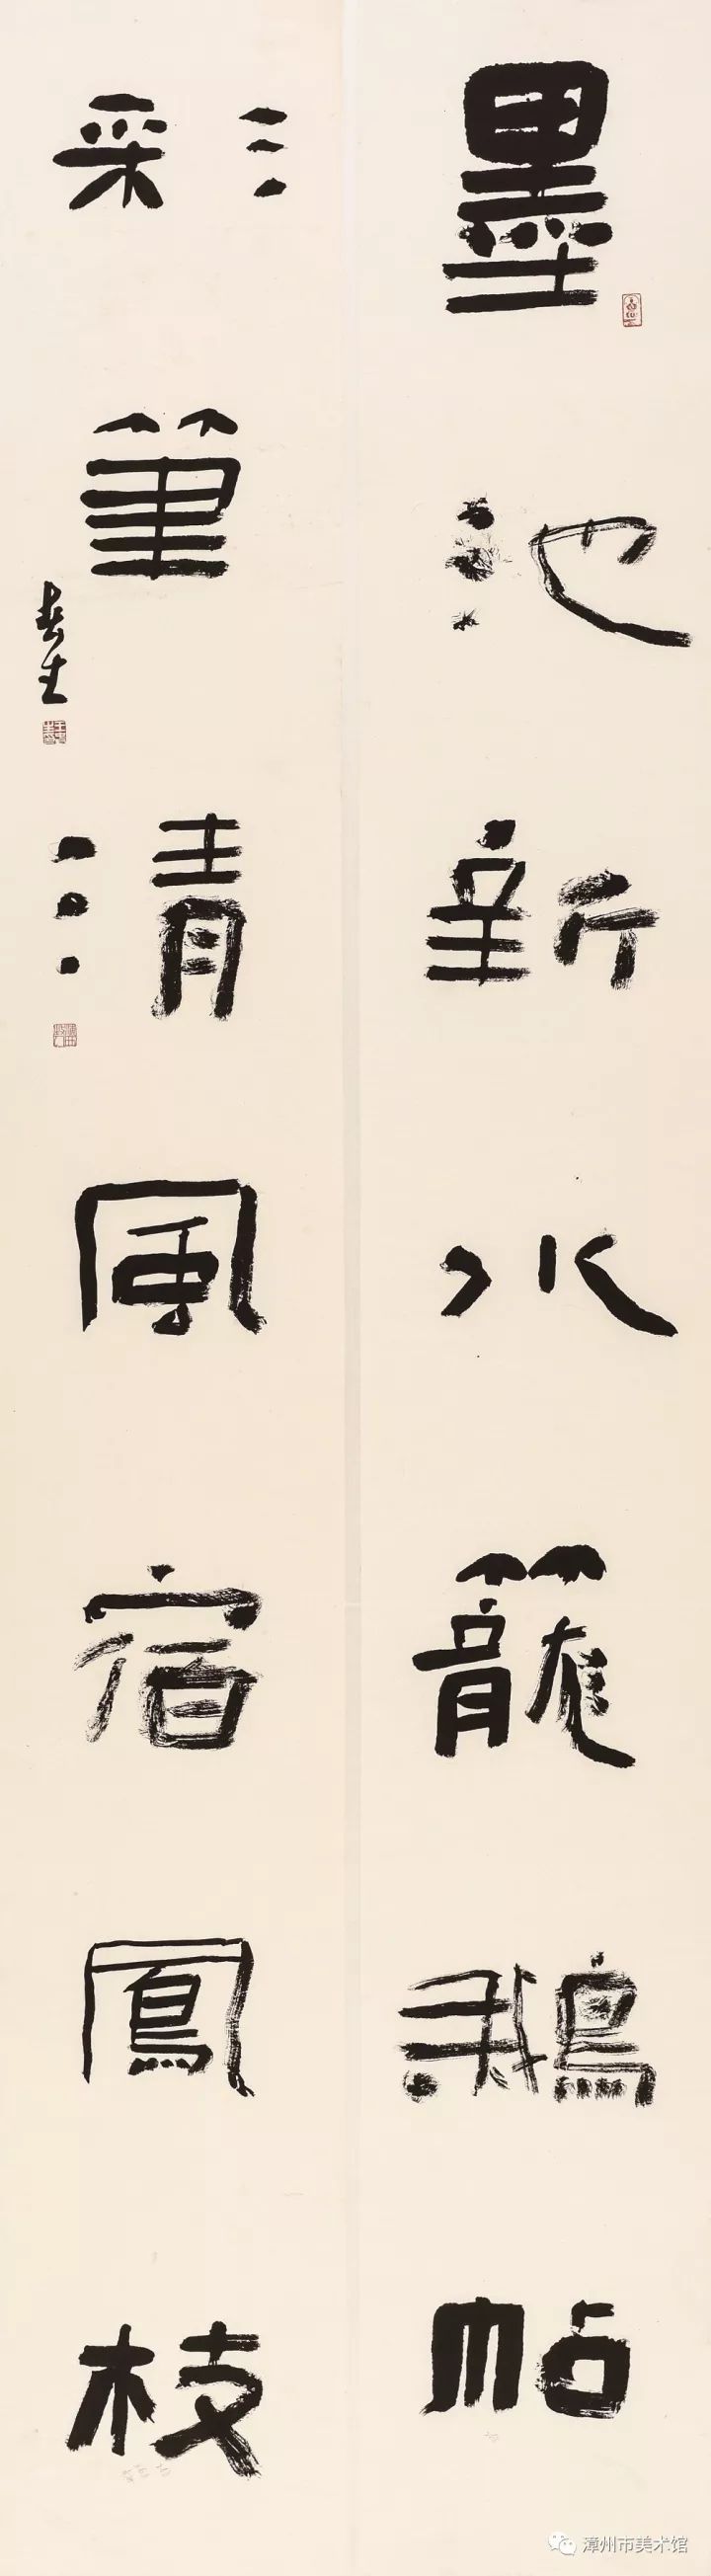 墨池新水籠鵝帖
彩筆清風宿鳳枝
春生
漳州市美术馆